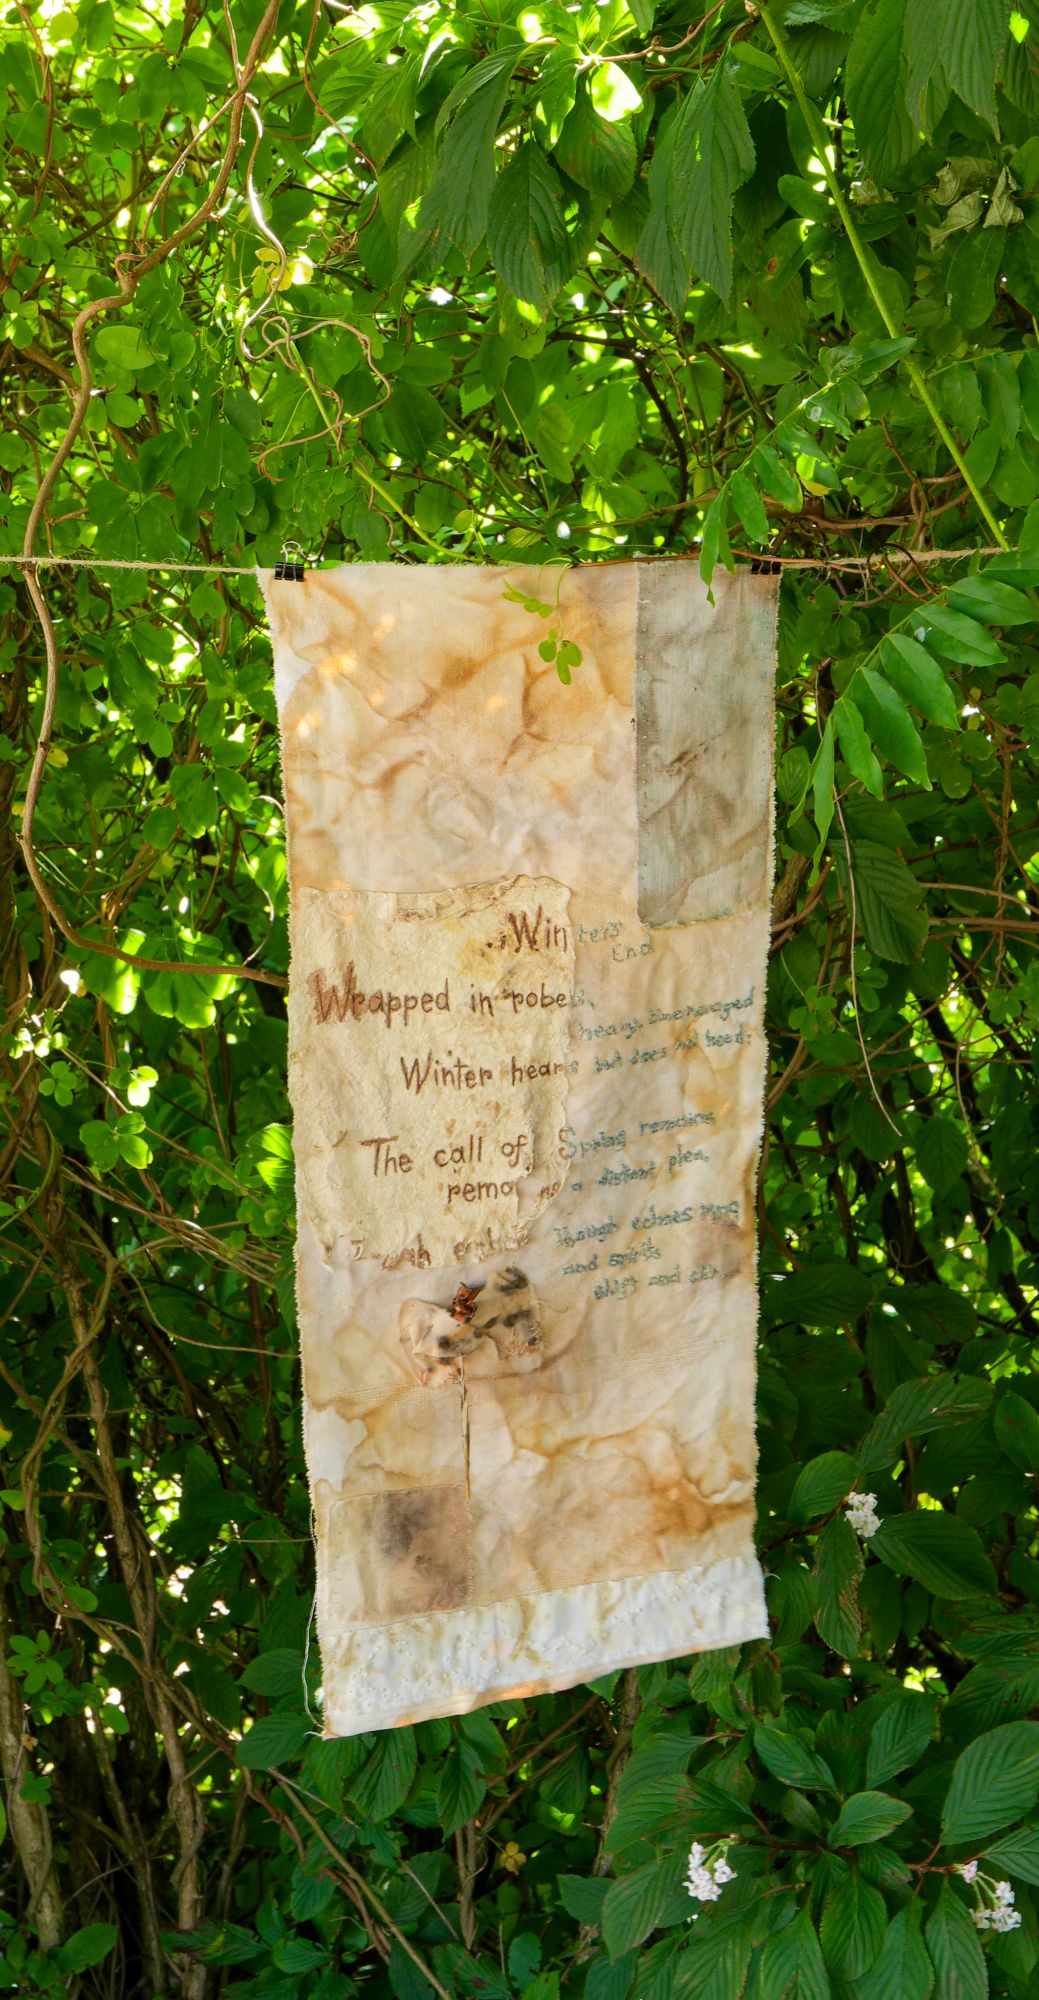 Winters
End
Wrapped in robes,
heavy, time ravaged
Winter hears but does not heed:
The call of Spring remains
remains a distant plea,
Though echoes ring
and spirits
shift and stir.